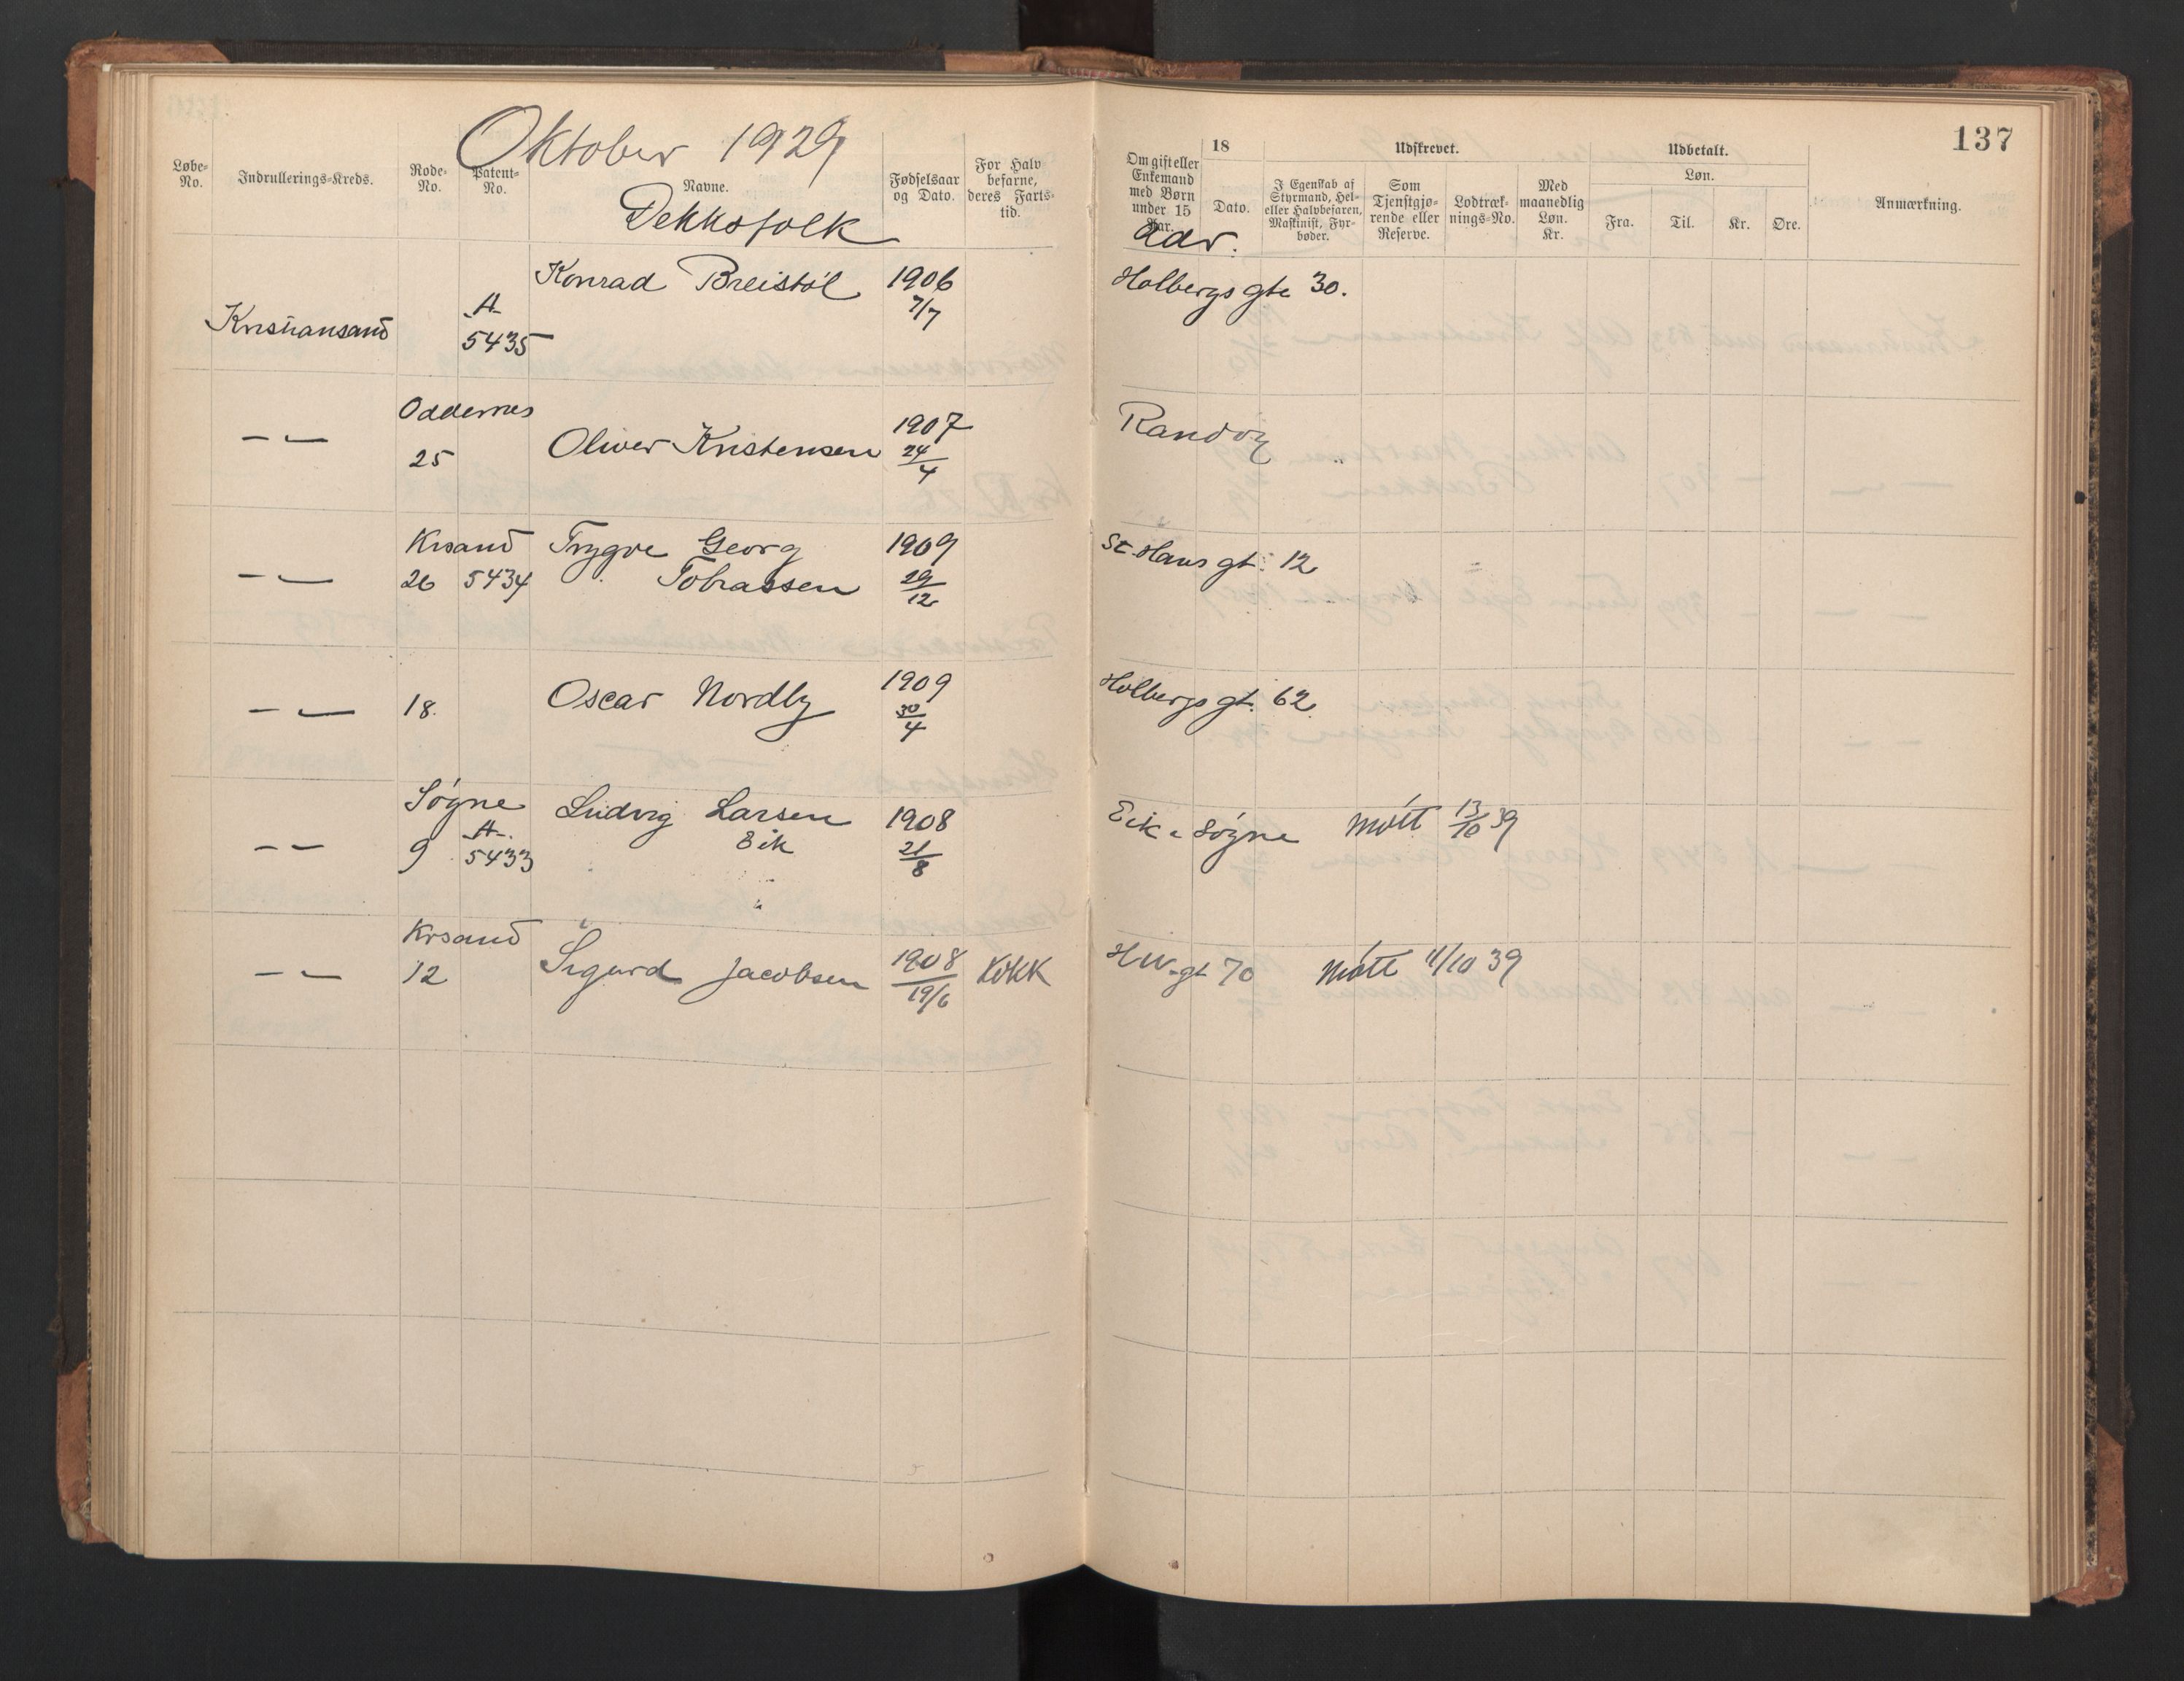 Oktober 1929
137
Løbe-No.
Indrullerings-Kreds.
Rode-No.
Patent-No.
Navne.
Fødselsaar og Dato.
For Halvbefarne, deres Fartstid.
Om gift eller Enkemand med Børn under 15 Aar.
18
Dato.
Udskrevet.
I Egenskab af Styrmand, Hel- eller Halvbefaren, Maskinist, Fyrbøder.
Som Tjenstgjørende eller Reserve.
Lodtræknings-No.
Med maanedlig Løn. Kr.
Udbetalt.
Løn.
Fra.
Til.
Kr.
Øre.
Anmærkning.
Dekksfolk
Adr.
Kristiansand
A
5435
Konrad Breistøl
1906
7/7
Holbergs gte 30.
— —
Oddernes
25
Oliver Kristensen
1907
24/4
Randøy
— —
Krsand
26 5434
Trygve Georg
Tobiassen
1909
29/12
St. Hans gt. 12
— —
18.
Oscar Nordby
1909
30/4
Holbergs gt. 62
— —
Søgne
9
A
5433
Ludvig Larsen
Eik
1908
21/8
Eik i Søgne
Møtt 13/10 39
— —
Krsand
12
Sigurd Jacobsen
1908
19/6
Kokk
HW-gt 70
Møtt 11/10 39